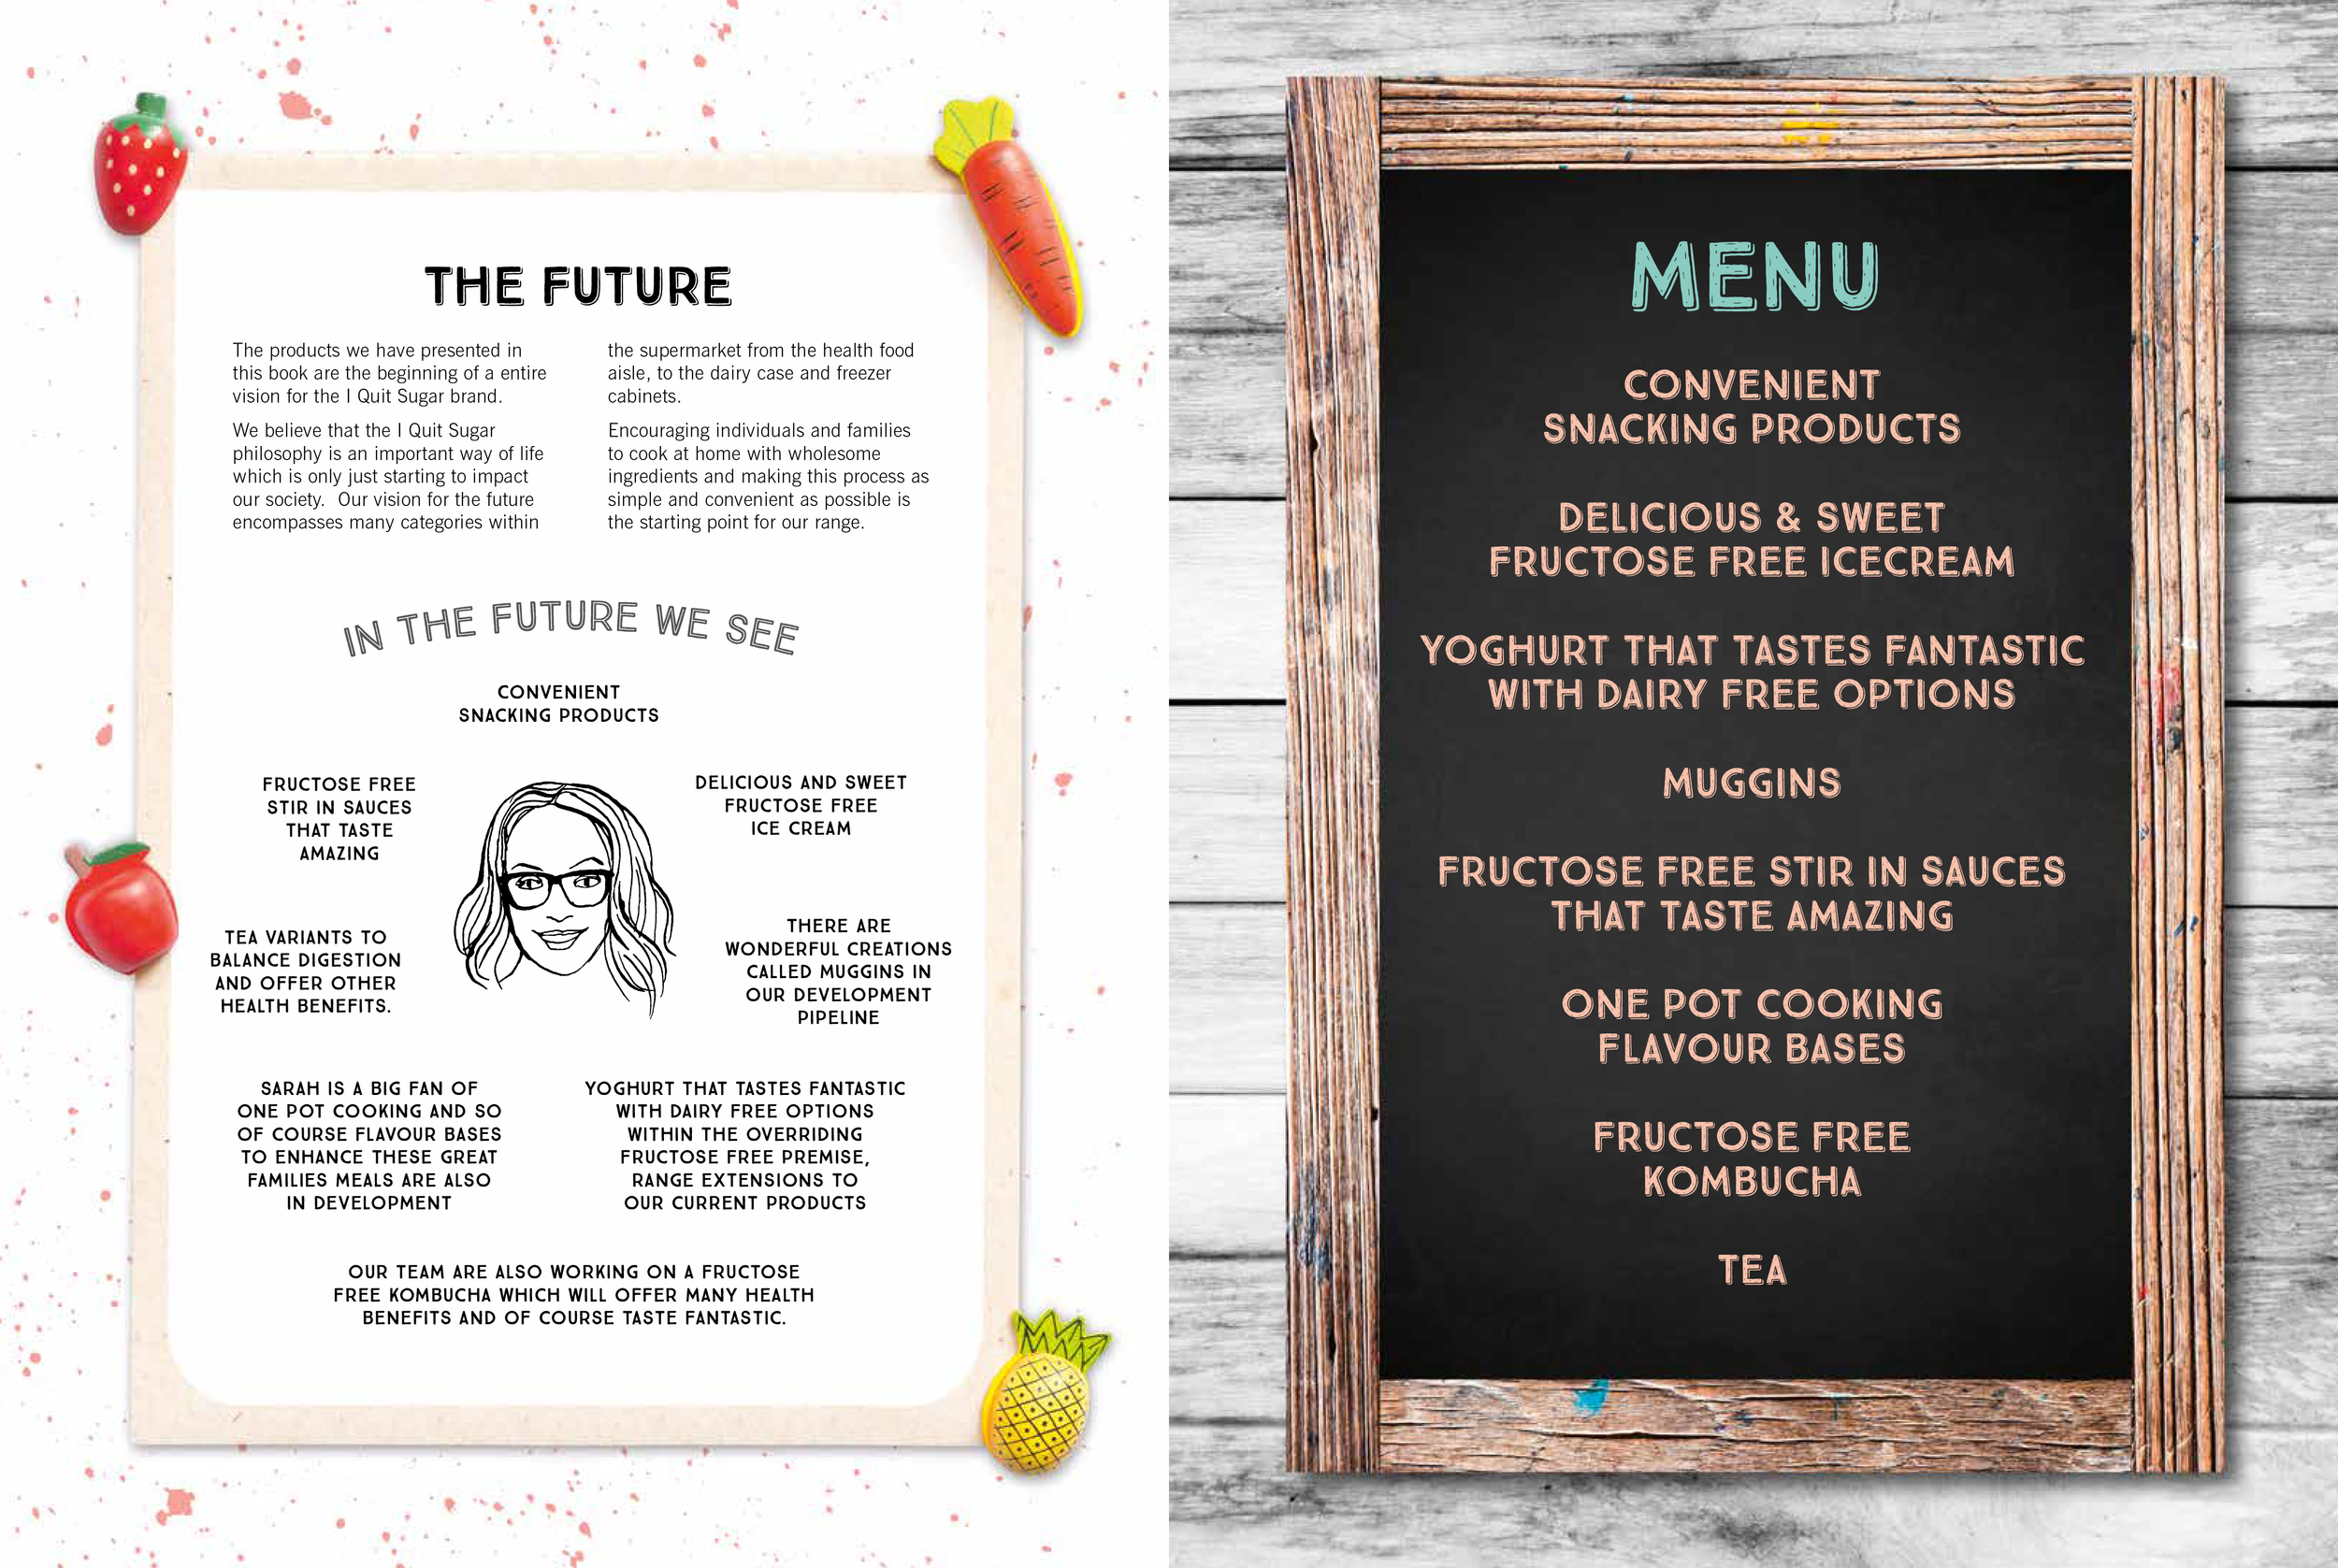 THE FUTURE
The products we have presented in
this book are the beginning of a entire
vision for the I Quit Sugar brand.
We believe that the I Quit Sugar
philosophy is an important way of life
which is only just starting to impact
our society.  Our vision for the future
encompasses many categories within
the supermarket from the health food
aisle, to the dairy case and freezer
cabinets.
Encouraging individuals and families
to cook at home with wholesome
ingredients and making this process as
simple and convenient as possible is
the starting point for our range.
IN THE FUTURE WE SEE
CONVENIENT
SNACKING PRODUCTS
FRUCTOSE FREE
STIR IN SAUCES
THAT TASTE
AMAZING
DELICIOUS AND SWEET
FRUCTOSE FREE
ICE CREAM
TEA VARIANTS TO
BALANCE DIGESTION
AND OFFER OTHER
HEALTH BENEFITS.
THERE ARE
WONDERFUL CREATIONS
CALLED MUGGINS IN
OUR DEVELOPMENT
PIPELINE
SARAH IS A BIG FAN OF
ONE POT COOKING AND SO
OF COURSE FLAVOUR BASES
TO ENHANCE THESE GREAT
FAMILIES MEALS ARE ALSO
IN DEVELOPMENT
YOGHURT THAT TASTES FANTASTIC
WITH DAIRY FREE OPTIONS
WITHIN THE OVERRIDING
FRUCTOSE FREE PREMISE,
RANGE EXTENSIONS TO
OUR CURRENT PRODUCTS
OUR TEAM ARE ALSO WORKING ON A FRUCTOSE
FREE KOMBUCHA WHICH WILL OFFER MANY HEALTH
BENEFITS AND OF COURSE TASTE FANTASTIC.
MENU
CONVENIENT
SNACKING PRODUCTS
DELICIOUS & SWEET
FRUCTOSE FREE ICECREAM
YOGHURT THAT TASTES FANTASTIC
WITH DAIRY FREE OPTIONS
MUGGINS
FRUCTOSE FREE STIR IN SAUCES
THAT TASTE AMAZING
ONE POT COOKING
FLAVOUR BASES
FRUCTOSE FREE
KOMBUCHA
TEA